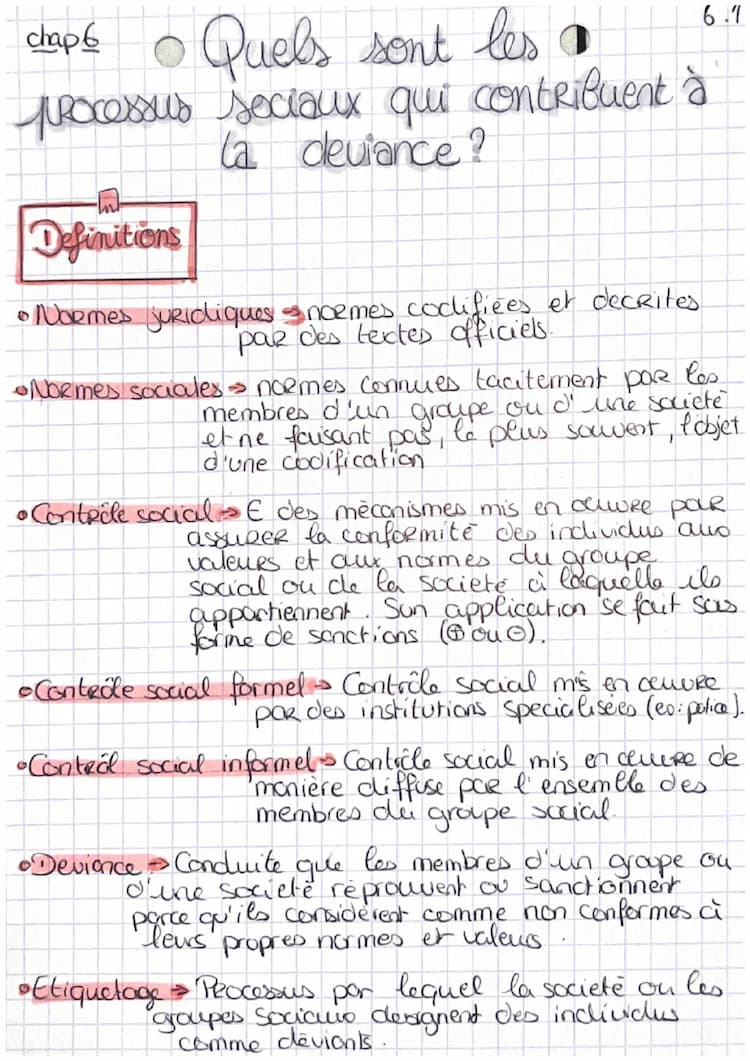 chap 6
6.1
Quels sont les
processus sociaux qui contribuent à
la deviance ?
Definitions
• Normes juridiques → normes codifiées et decrites
par des textes officiels.
• Normes sociales → normes connues tacitement par les
membres d'un groupe ou d'une societé
et ne faisant pas, le plus souvent, l'objet
d'une codification
• Contrôle social → E des mécanismes mis en œuvre pour
assurer la conformité des individus aux
valeurs et aux normes du groupe
social ou de la societé à laquelle ils
appartiennent. Son application se fait sous
forme de sanctions (⊕ ou ⊖).
• Contrôle social formel → Contrôle social mis en œuvre
par des institutions specialisées (ex: police).
• Contrôl social informel → Contrôle social mis en œuvre de
manière diffuse par l'ensemble des
membres du groupe social.
• Deviance → Conduite que les membres d'un groupe ou
d'une societé réprouvent ou sanctionnent
parce qu'ils considérent comme non conformes à
leurs propres normes et valeurs.
• Etiquetage → Processus par lequel la societé ou les
groupes sociaux designent des individus
comme déviants.